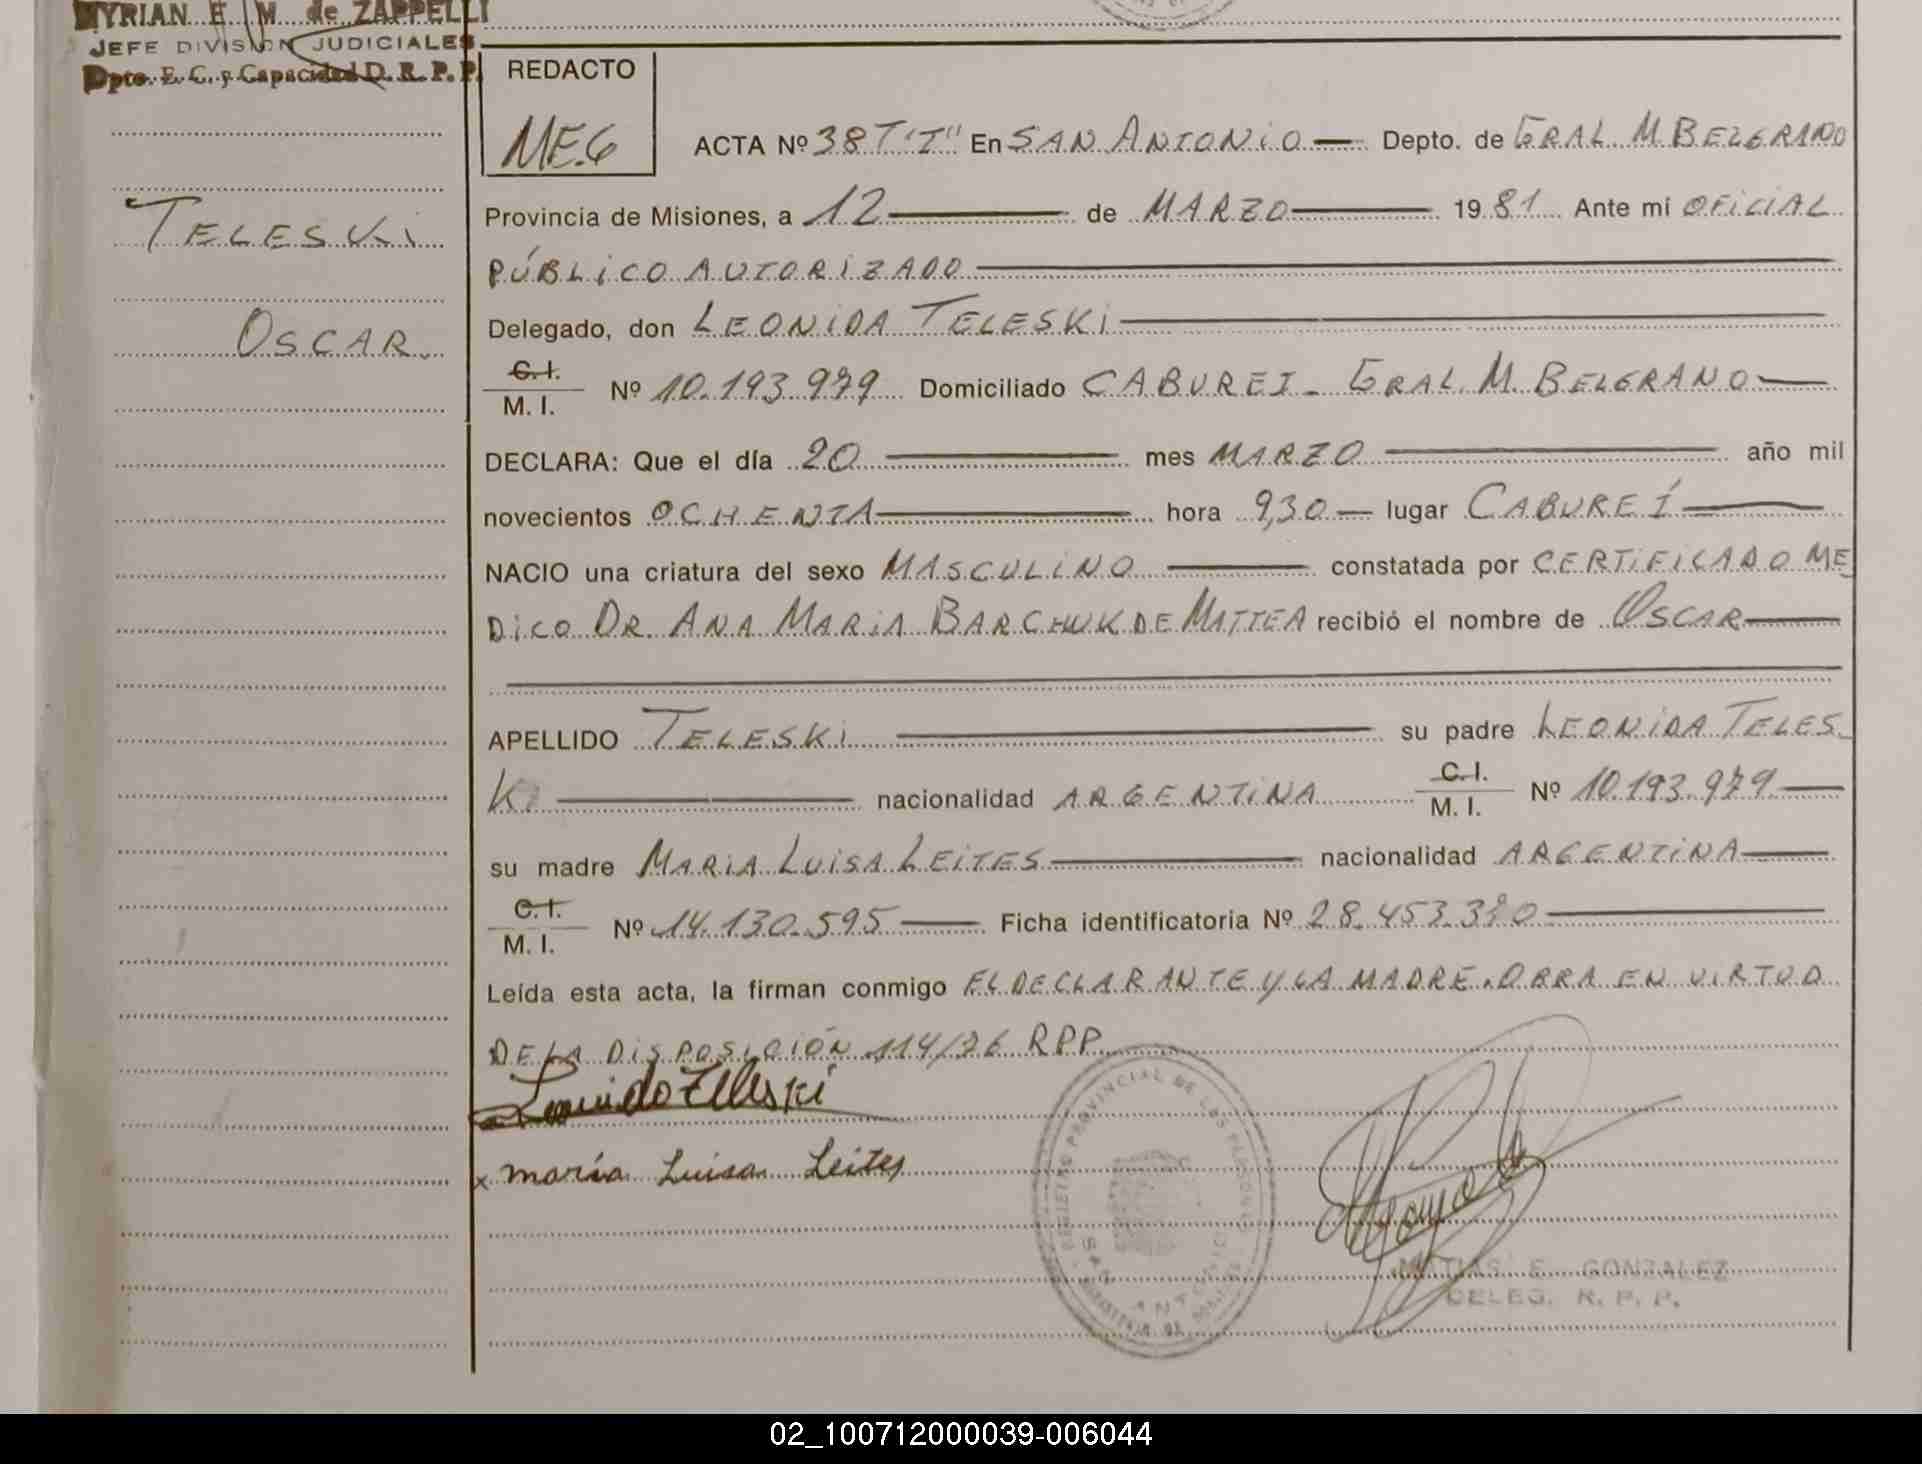 MYRIAN E. M. de ZAPPELLI
JEFE DIVISION JUDICIALES
Dpto. E. C. y Capacidad D. R. P. P.
TELESKI
OSCAR.
REDACTO
ME6
ACTA Nº 38 T "I" En SAN ANTONIO — Depto. de GRAL M. BELGRANO
Provincia de Misiones, a 12 — de MARZO — 1981 Ante mí OFICIAL
PÚBLICO AUTORIZADO
Delegado, don LEONIDA TELESKI
C. I.
M. I. Nº 10.193.979 Domiciliado CABUREI - GRAL M. BELGRANO
DECLARA: Que el día 20 — mes MARZO — año mil
novecientos OCHENTA — hora 9,30 — lugar CABUREÍ
NACIO una criatura del sexo MASCULINO — constatada por CERTIFICADO ME
DICO DR. ANA MARIA BARCHUK DE MATTEA recibió el nombre de OSCAR
APELLIDO TELESKI — su padre LEONIDA TELES
KI — nacionalidad ARGENTINA C. I.
M. I. Nº 10.193.979
su madre MARIA LUISA LEITES — nacionalidad ARGENTINA
C. I.
M. I. Nº 14.130.595 — Ficha identificatoria Nº 28.453.330
Leída esta acta, la firman conmigo EL DECLARANTE Y LA MADRE. OBRA EN VIRTUD
DE LA DISPOSICIÓN 114/76 RPP
Leonido Teleski
x maría Luisa Leites
REGISTRO PROVINCIAL DE LAS PERSONAS
SAN ANTONIO
MATIAS E. GONZALEZ
DELEG. R. P. P.
02_100712000039-006044